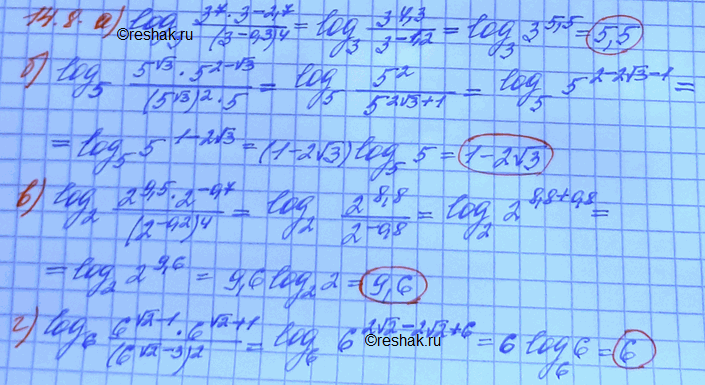 14.8. а) log₃ (3⁷ · 3^(-2,7))/((3^(-0,3))⁴) = log₃ 3^(4,3)/3^(-1,2) = log₃ 3^(5,5) = 5,5
©reshak.ru
б) log₅ (5^(√3) · 5^(2-√3))/((5^(√3))² · 5) = log₅ 5²/5^(2√3+1) = log₅ 5^(2-2√3-1) =
= log₅ 5^(1-2√3) = (1-2√3) log₅ 5 = 1-2√3
в) log₂ (2^(9,5) · 2^(-0,7))/((2^(-0,2))⁴) = log₂ 2^(8,8)/2^(-0,8) = log₂ 2^(8,8+0,8) =
= log₂ 2^(9,6) = 9,6 log₂ 2 = 9,6
г) log₆ (6^(√2-1) · 6^(√2+1))/((6^(√2-3))²) = log₆ 6^(2√2-2√2+6) = 6 log₆ 6 = 6
©reshak.ru